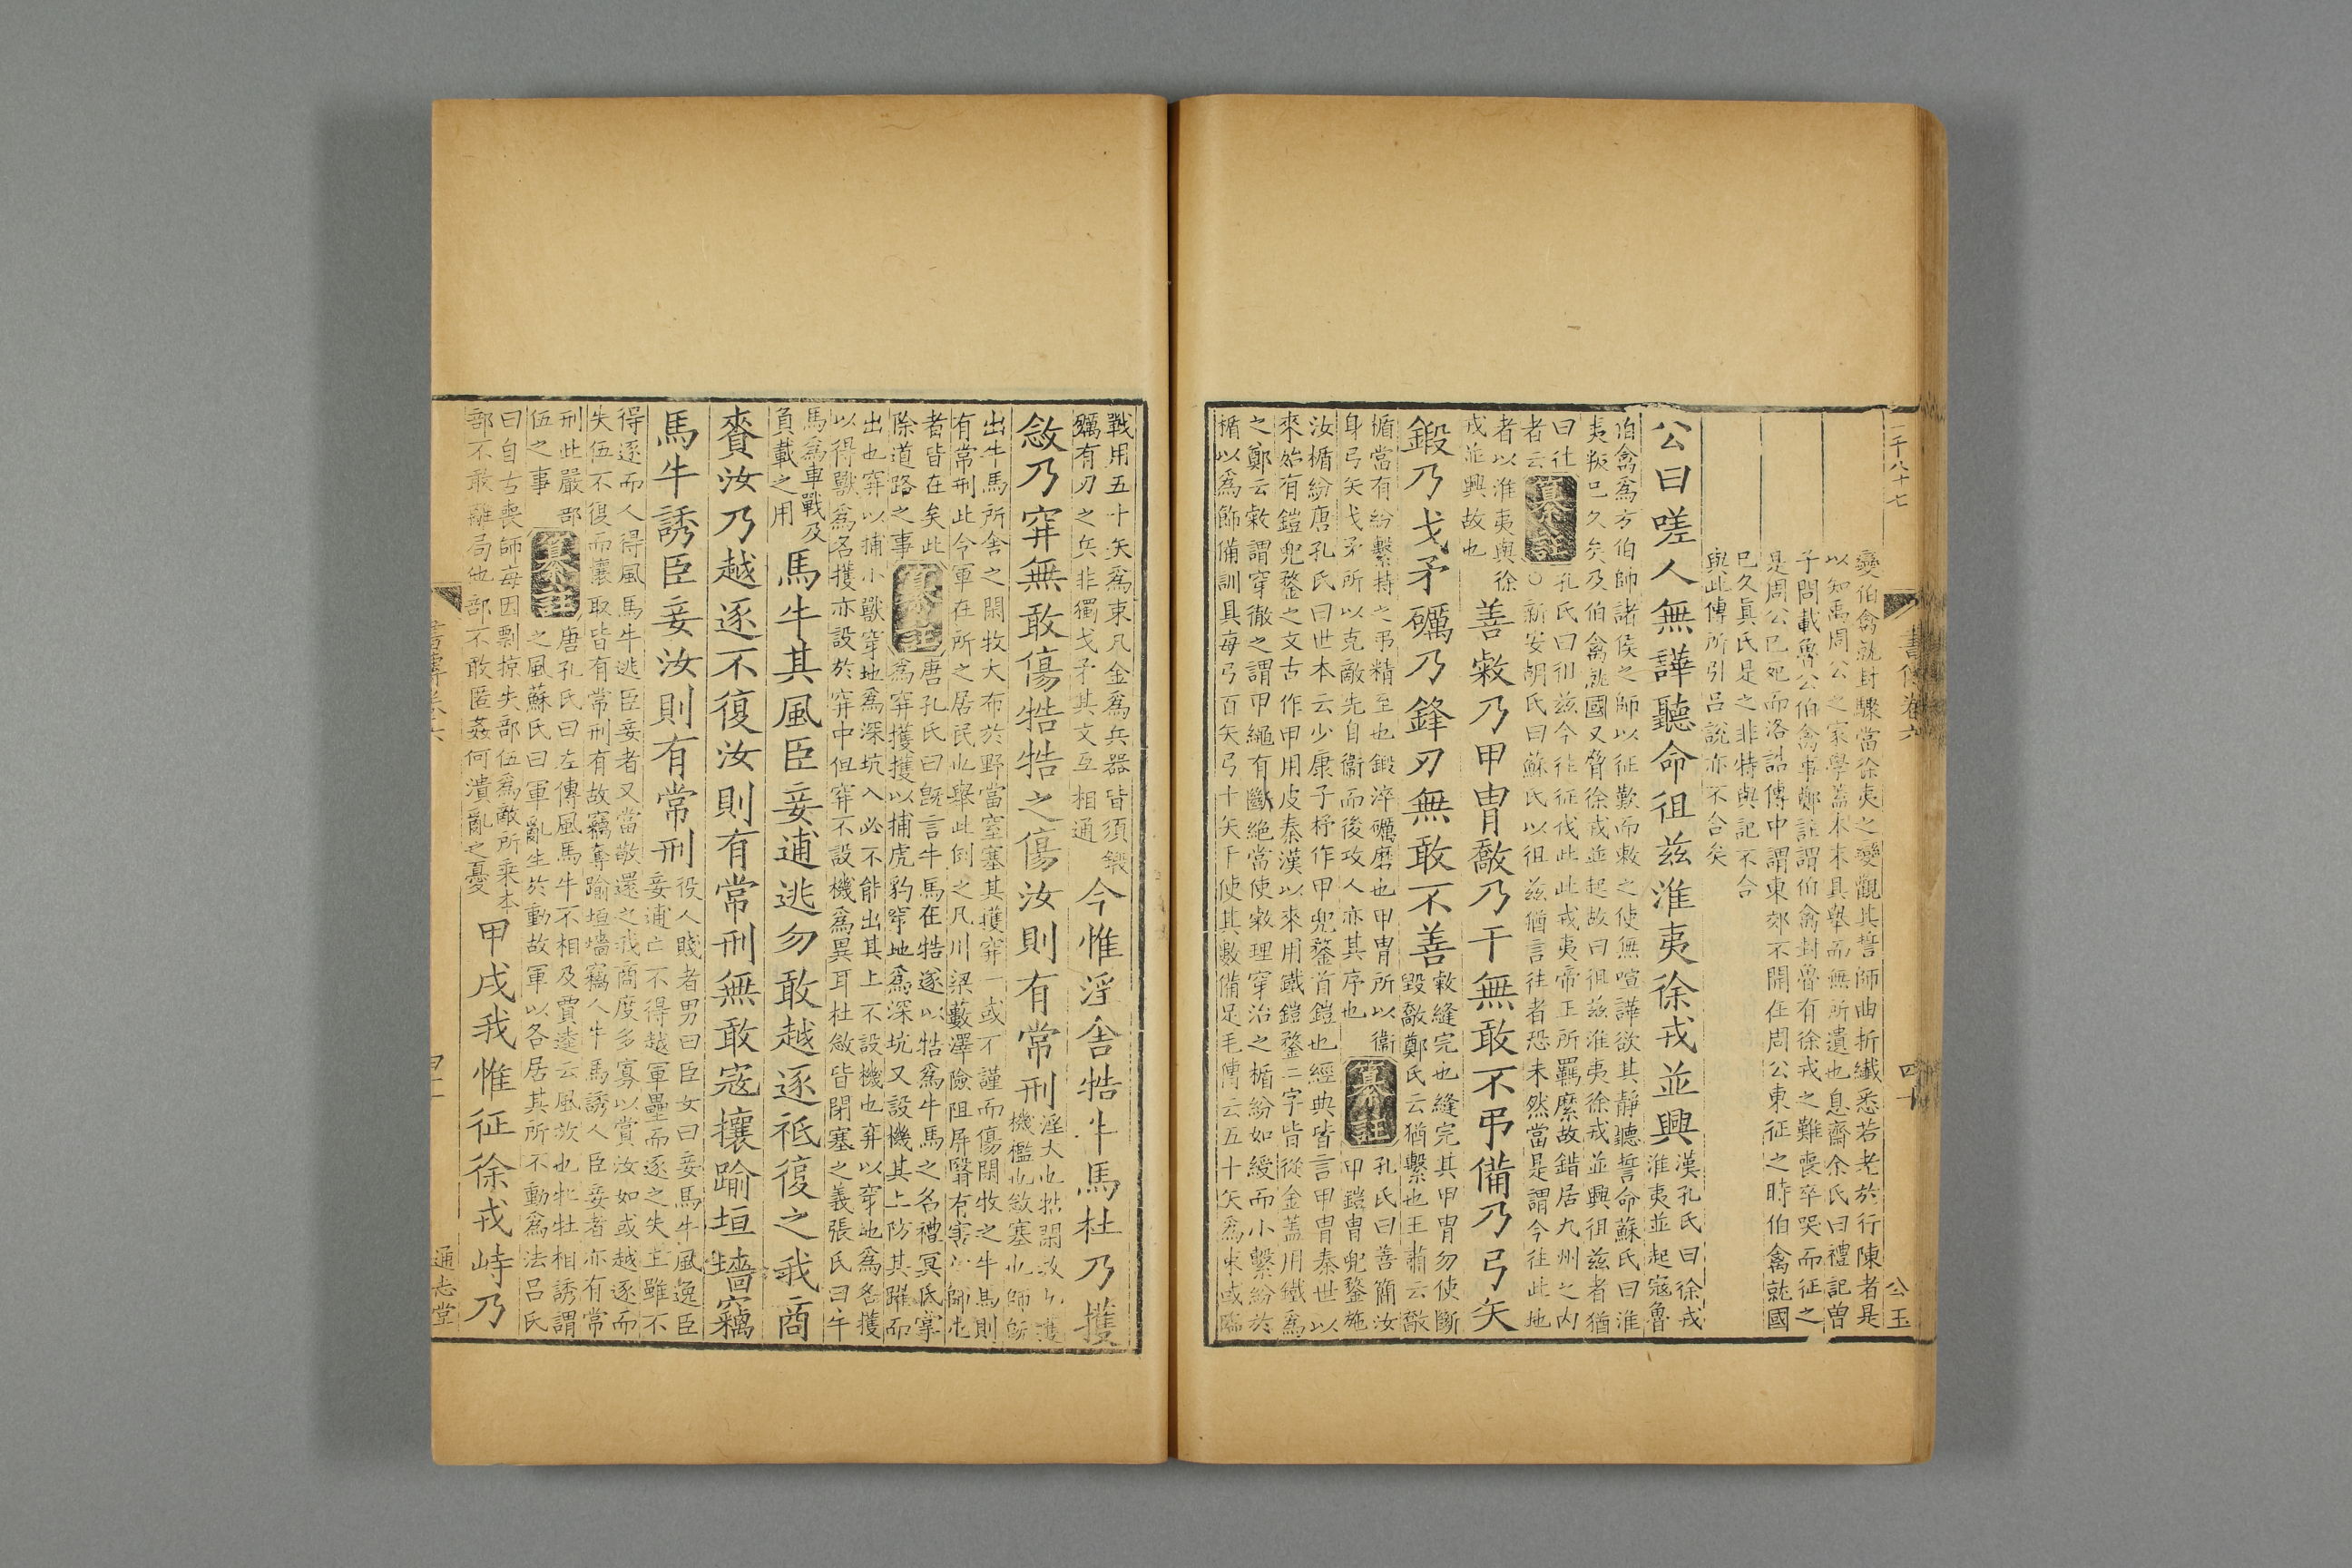 二千八十七
書傳卷六
四十
公玉
變伯禽就封驟當徐夷之變觀其誓師曲折纎悉若老於行陳者是
以知禹周公之家學蓋本末具舉而無所遺也息齋余氏曰禮記曽
子問載魯公伯禽事鄭註謂伯禽封魯有徐戎之難喪卒哭而征之
是周公已歿而洛誥傳中謂東郊不開在周公東征之時伯禽就國
已久眞氏是之非特與記不合
與此傳所引吕說亦不合矣
公曰嗟人無譁聽命徂兹淮夷徐戎並興
漢孔氏曰徐戎
淮夷並起寇魯
伯禽爲方伯帥諸侯之師以征歎而敕之使無喧譁欲其靜聽誓命蘇氏曰淮
夷叛已久矣及伯禽就國又脅徐戎並起故曰徂兹淮夷徐戎並興徂兹者猶
曰往
者云
纂註
孔氏曰徂兹今往征伐此此戎夷帝王所羈縻故錯居九州之内
○新安胡氏曰蘇氏以徂兹猶言往者恐未然當是謂今往此地
者以淮夷與徐
戎並興故也
善敹乃甲冑敿乃干無敢不弔備乃弓矢
鍛乃戈矛礪乃鋒刃無敢不善
敹縫完也縫完其甲冑勿使斷
毀敿鄭氏云猶繫也王肅云敿
楯當有紛繫持之弔精至也鍛淬礪磨也甲冑所以衞
身弓矢戈矛所以克敵先自衞而後攻人亦其序也
纂註
孔氏曰善簡汝
甲鎧冑兜鍪施
汝楯紛唐孔氏曰世本云少康子杼作甲兜鍪首鎧也經典皆言甲冑秦世以
來始有鎧兜鍪之文古作甲用皮秦漢以來用鐵鎧鍪二字皆從金蓋用鐵爲
之鄭云敹謂穿徹之謂甲繩有斷絶當使敹理穿治之楯紛如綬而小繫紛於
楯以爲飾備訓具每弓百矢弓十矢千使其數備足毛傳云五十矢爲束或臨
戰用五十矢爲束凡金爲兵器皆須鍛
礪有刃之兵非獨戈矛其文互相通
今惟淫舎牿牛馬杜乃擭
敜乃穽無敢傷牿牿之傷汝則有常刑
淫大也牿閑牧也擭
機檻也敜塞也師旣
出牛馬所舎之閑牧大布於野當窒塞其擭穽一或不謹而傷閑牧之牛馬則
有常刑此令軍在所之居民也舉此倒之凡川梁藪澤險阻屏翳有害於師屯
者皆在矣此
除道路之事
纂註
唐孔氏曰旣言牛馬在牿遂以牿爲牛馬之名禮冥氏掌
爲穽擭擭以捕虎豹穿地爲深坑又設機其上防其躍而
出也穽以捕小獸穿地爲深坑入必不能出其上不設機也穽以穿地爲名擭
以得獸爲名擭亦設於穽中但穽不設機爲異耳杜敜皆閉塞之義張氏曰牛
馬爲車戰及
負載之用
馬牛其風臣妾逋逃勿敢越逐祗復之我商
賚汝乃越逐不復汝則有常刑無敢寇攘踰垣墻竊
馬牛誘臣妾汝則有常刑
役人賤者男曰臣女曰妾馬牛風逸臣
妾逋亡不得越軍壘而逐之失主雖不
得逐而人得風馬牛逃臣妾者又當敬還之我商度多寡以賞汝如或越逐而
失伍不復而攘取皆有常刑有故竊奪踰垣墻竊人牛馬誘人臣妾者亦有常
刑此嚴部
伍之事
纂註
唐孔氏曰左傳風馬牛不相及賈逵云風放也牝牡相誘謂
之風蘇氏曰軍亂生於動故軍以各居其所不動爲法吕氏
曰自古喪師每因剽掠失部伍爲敵所乘本
部不敢離局他部不敢匿姦何潰亂之憂
甲戌我惟征徐戎峙乃
書傳卷六
四十一
通志堂